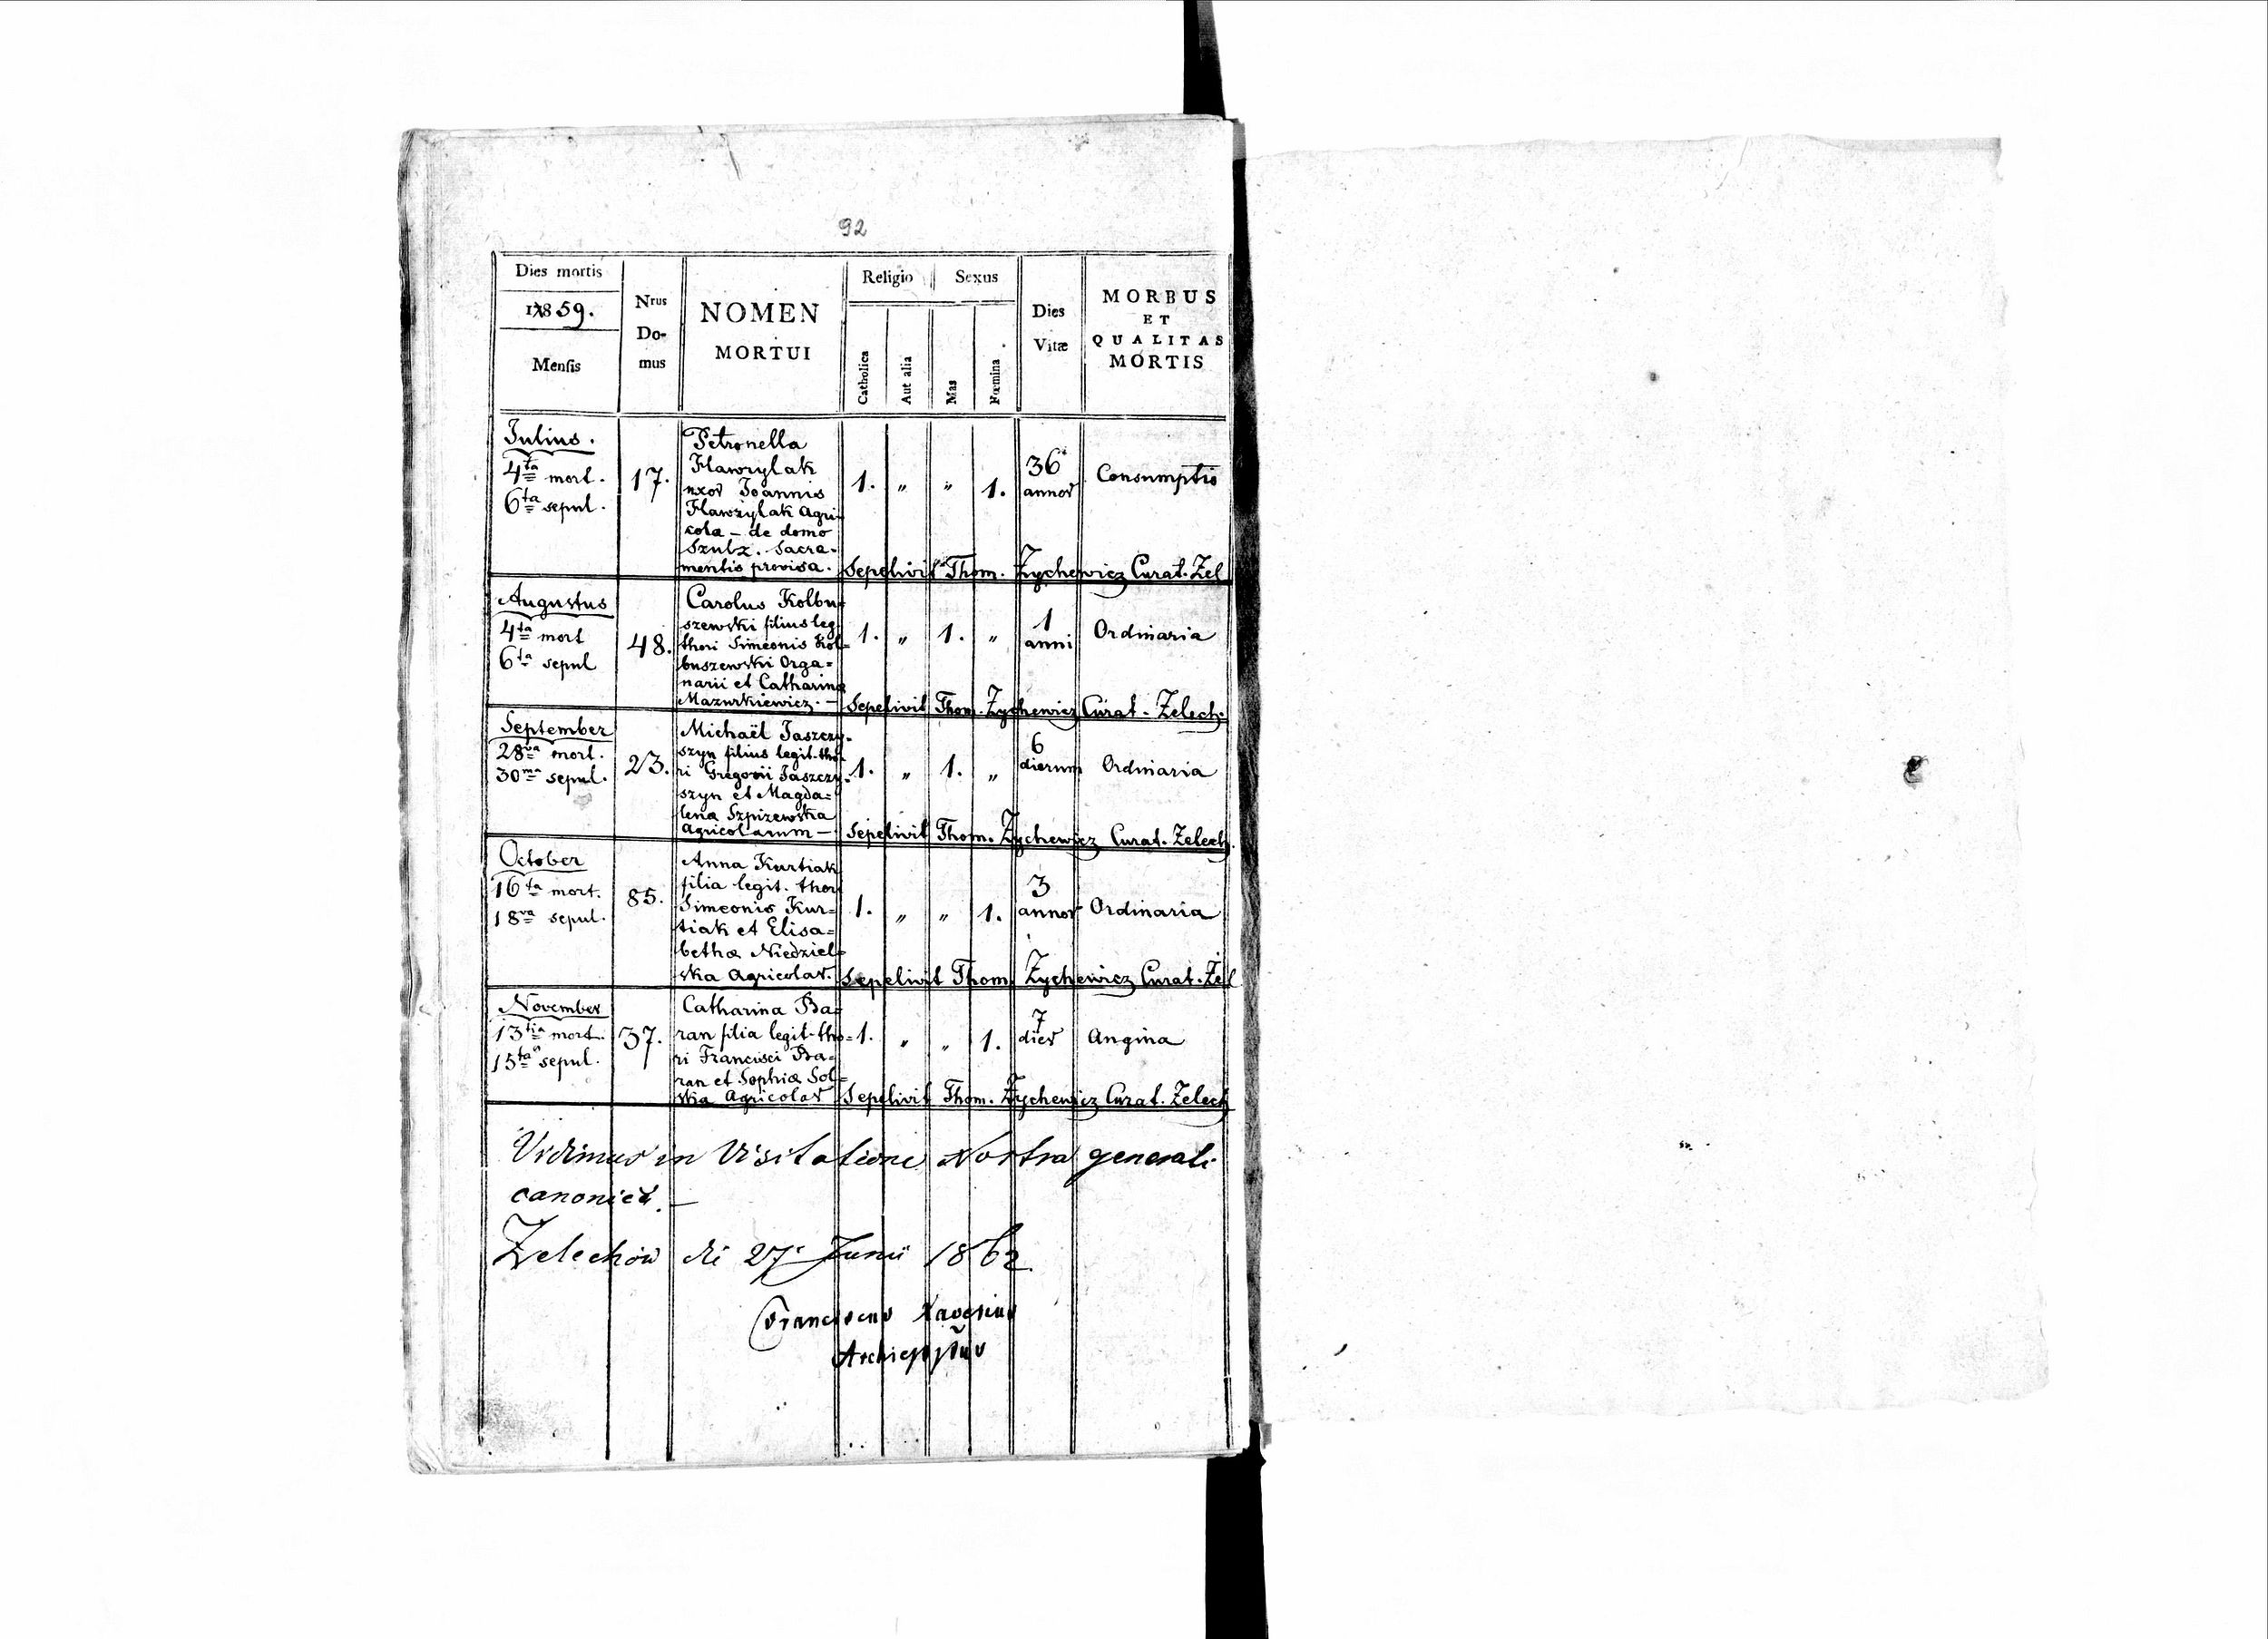 92
Dies mortis
1859.
Mensis
Nrus
Do-
mus
NOMEN
MORTUI
Religio
Sexus
Catholica
Aut alia
Mas
Fœmina
Dies
Vitæ
MORBUS
ET
QUALITAS
MORTIS
Julius.
4ta mort.
6ta sepul.
17.
Petronella
Hawrylak
uxor Joannis
Hawrylak Agri-
cola – de domo
Szulz. Sacra-
mentis provisa.
1. „ „ 1.
36
annor
Consumptio
Sepelivit Thom. Zychewicz Curat. Żel
Augustus
4ta mort
6ta sepul
48.
Carolus Kolbu-
szewski filius leg.
thori Simeonis Kol=
buszewski Orga=
narii et Catharina
Mazurkiewicz. –
1. „ 1. „
1
anni
Ordinaria
Sepelivit Thom. Zychewicz Curat. Zelech.
September
28va mort.
30ma sepul.
23.
Michaël Jaszczy-
szyn filius legit. tho-
ri Gregorii Jaszczy-
szyn et Magda=
lena Szpizewska
Agricolarum –
1. „ 1. „
6
dierum
Ordinaria
Sepelivit Thom. Zychewicz Curat. Zelech.
October
16ta mort.
18va sepul.
85.
Anna Kurtiak
filia legit. thori
Simeonis Kur=
tiak et Elisa=
bethæ Niedziel=
ska Agricolar.
1. „ „ 1.
3
annor
Ordinaria
Sepelivit Thom Zychewicz Curat. Żel
November
13tia mort.
15ta sepul.
37.
Catharina Ba-
ran filia legit. tho=
ri Francisci Ba=
ran et Sophiæ Sol=
ska Agricolar
1. „ „ 1.
7
dier
Angina
Sepelivit Thom. Zychewicz Curat. Zelech
Vidimus in Visitatione Nostra generali
canonica. –
Zelechów di 27 Junii 1862
Franciscus Xaverius
Archieppus